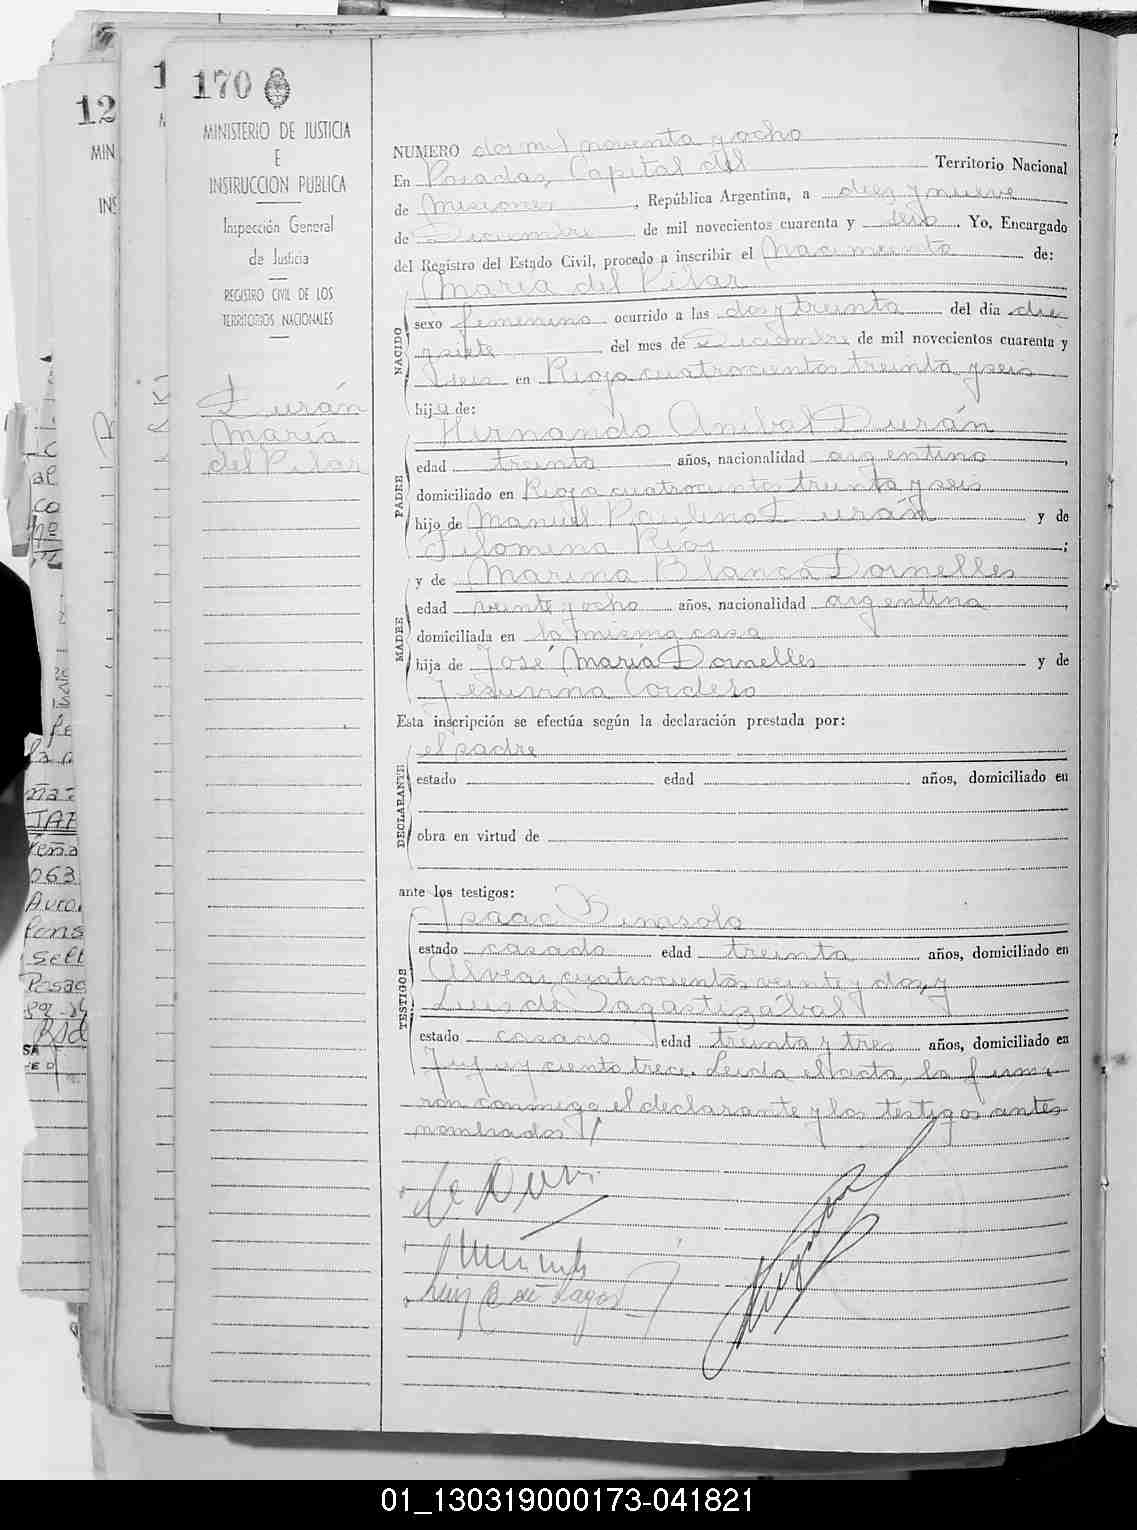 170
MINISTERIO DE JUSTICIA
E
INSTRUCCION PUBLICA
Inspección General
de Justicia
REGISTRO CIVIL DE LOS
TERRITORIOS NACIONALES
Durán
María
del Pilar
12
MIN
INS
NUMERO dos mil noventa y ocho
En Posadas, Capital del Territorio Nacional
de Misiones, República Argentina, a diez y nueve
de Diciembre de mil novecientos cuarenta y seis. Yo, Encargado
del Registro del Estado Civil, procedo a inscribir el Nacimiento de:
NACIDO
María del Pilar
sexo femenino ocurrido a las dos y treinta del día diez
y siete del mes de Diciembre de mil novecientos cuarenta y
seis en Rioja cuatrocientos treinta y seis
hija de:
PADRE
Hernando Anibal Durán
edad treinta años, nacionalidad argentino,
domiciliado en Rioja cuatrocientos treinta y seis
hijo de Manuel Paulino Durán y de
Filomena Rios;
MADRE
y de Marina Blanca Dornelles
edad veinte y ocho años, nacionalidad argentina,
domiciliada en la misma casa
hija de José María Dornelles y de
Jesusina Cordero
Esta inscripción se efectúa según la declaración prestada por:
DECLARANTE
el padre
estado edad años, domiciliado en
obra en virtud de
ante los testigos:
TESTIGOS
Isaac
estado casado edad treinta años, domiciliado en
Alvear cuatrocientos veinte y dos, y
Luis de Sagastizábal
estado casado edad treinta y tres años, domiciliado en
Jujuy ciento trece. Leida el acta, la firma-
ron conmigo el declarante y los testigos antes
nombrados.
01_130319000173-041821